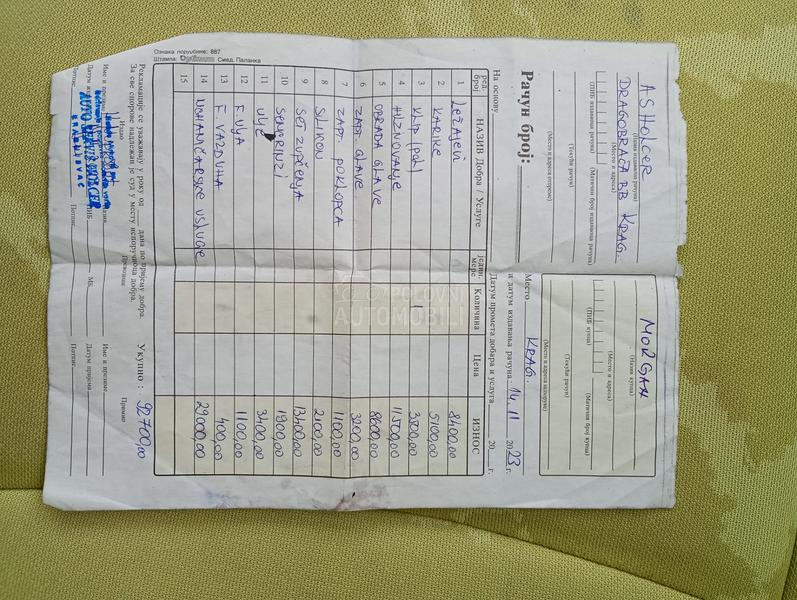 AS HOLCER
(Назив издаваоца рачуна)
DRAGOBRAĆA BB KRAG.
(Место и адреса)
(ПИБ издаваоца рачуна) (Матични број издаваоца рачуна)
(Текући рачун)
(Место и адреса отпреме)
MORGAN
(Назив купца)
(Место и адреса)
(ПИБ купца) (Матични број купца)
(Текући рачун)
(Место и адреса испоруке)
Рачун број:
Место KRAG.
и датум издавања рачуна: 14.11 2023 г.
На основу
Датум промета добара и услуга 20 г.
ред. број НАЗИВ Добра / Услуге једин. мере Количина Цена ИЗНОС
1 LEŽAJEVI 8400,00
2 KARIKE 5100,00
3 KLIP (POL) 1 3500,00
4 HILZNOVANJE 11500,00
5 OBRADA GLAVE 8600,00
6 ZAPT. GLAVE 3200,00
7 ZAPT. POKLOPCA 1100,00
8 SILIKON 2100,00
9 SET ZUPČENJA 13400,00
10 SEMERINZI 1900,00
11 ULJE 3400,00
12 F. ULJA 1100,00
13 F. VAZDUHA 400,00
14 MEHANIČARSKE USLUGE 29000,00
15
Укупно: 92700,00
Рекламације се уважавају у року од дана по пријему добра.
За све спорове надлежан је суд у месту испоручиоца добра.
Издао Превозник Примио
Име и презиме Име и презиме
Датум МБ Датум пријема
ПИБ
Потпис Потпис Потпис
AUTO SERVIS HOLCER
KRAGUJEVAC
Ознака поруџбине: 887
Штампа: Смед. Паланка
POLOVNI
AUTOMOBILI